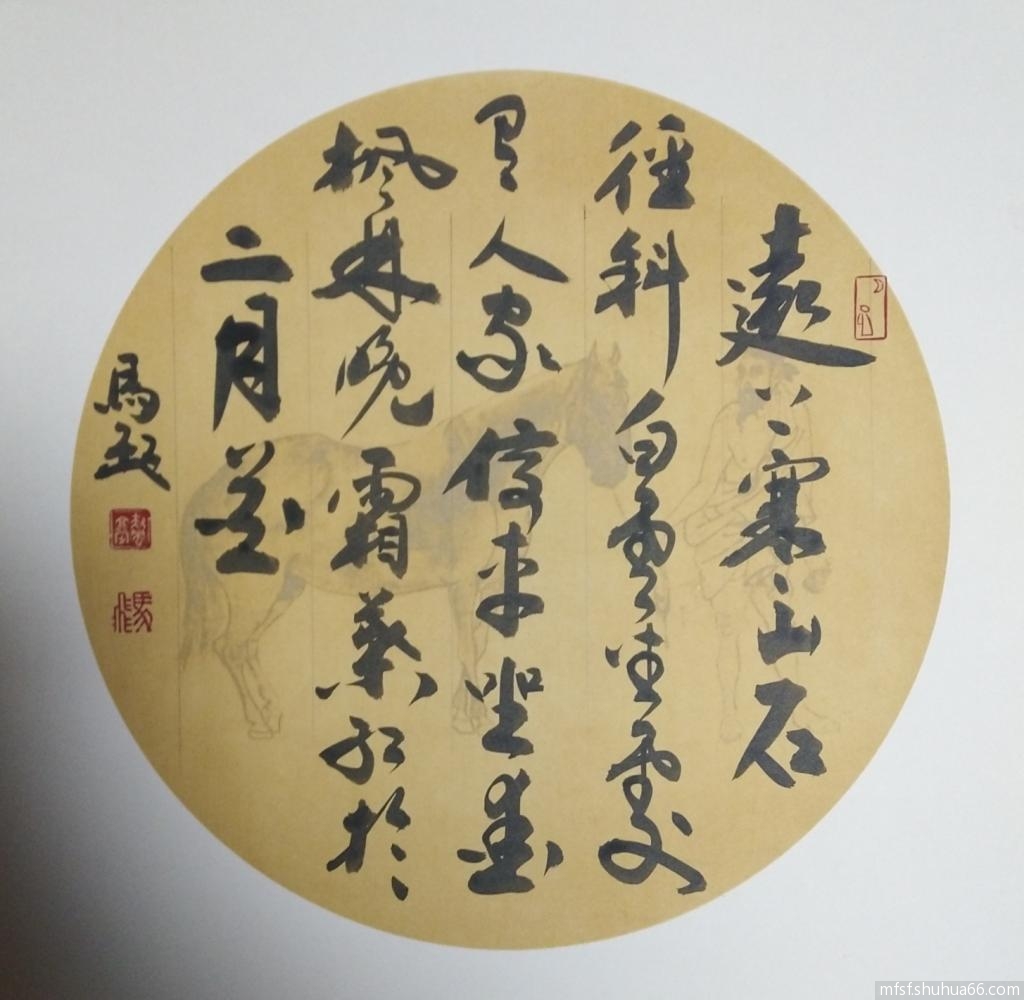 遠上寒山石
徑斜白雲生處
有人家停車坐愛
楓林晚霜葉紅於
二月花
馬
mfsf.shuhua66.com